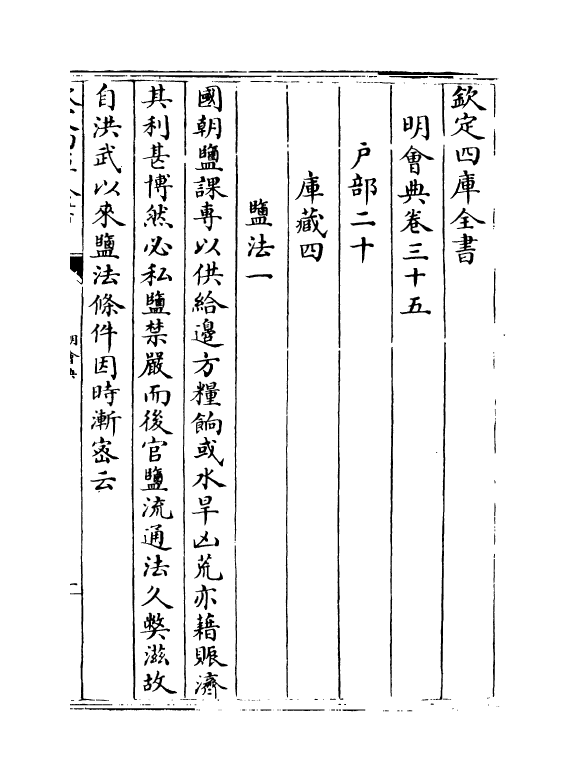 欽定四庫全書
明會典卷三十五
戶部二十
庫藏四
鹽法一
國朝鹽課專以供給邊方糧餉或水旱凶荒亦藉賑濟
其利甚博然必私鹽禁嚴而後官鹽流通法久弊滋故
自洪武以來鹽法條件因時漸密云
明會典